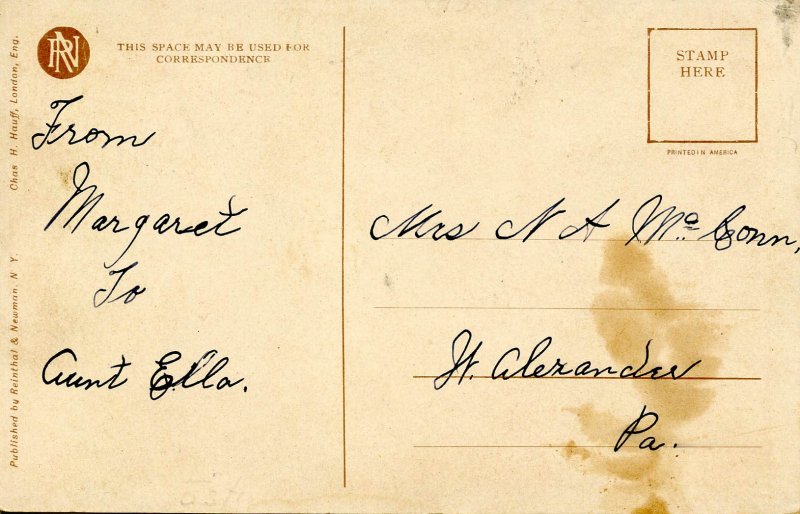 RN
THIS SPACE MAY BE USED FOR
CORRESPONDENCE
STAMP
HERE
PRINTED IN AMERICA
From
Margaret
To
Aunt Ella.
Mrs N A Mc Conn,
W. Alexander
Pa.
Published by Reinthal & Newman, N. Y.
Chas H. Hauff, London, Eng.